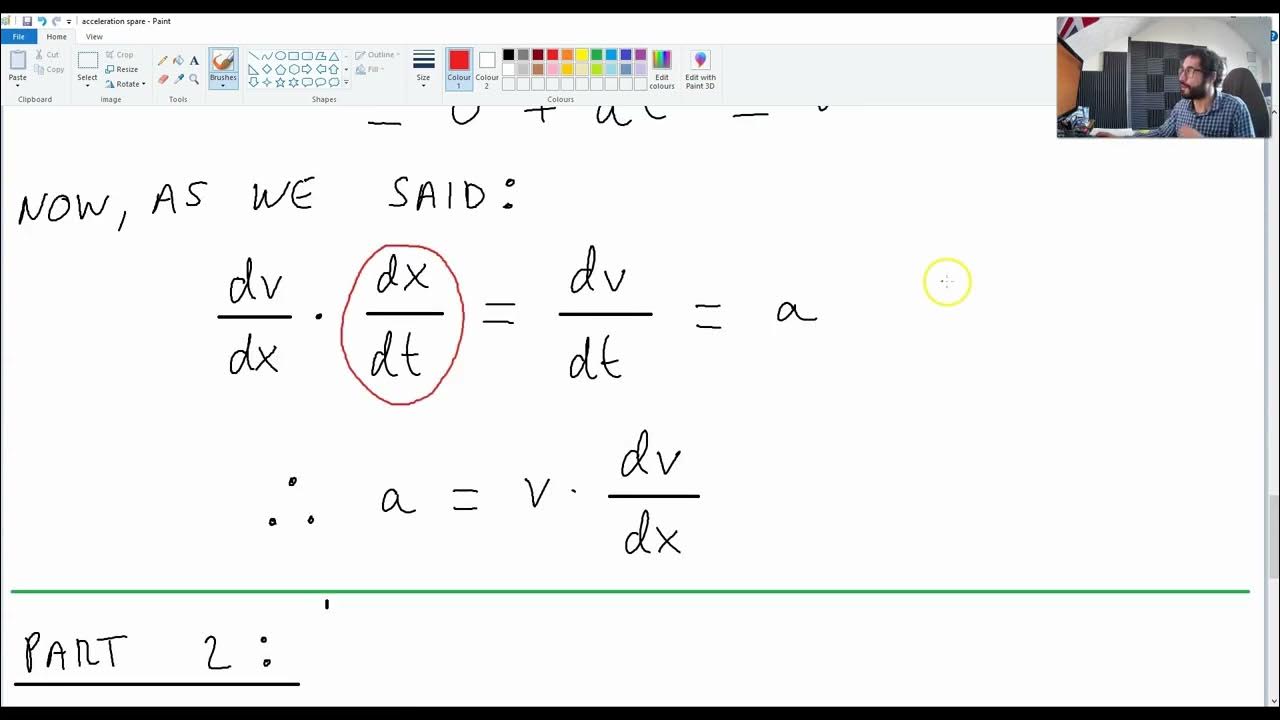 acceleration spare - Paint
File Home View
Paste Cut Copy Clipboard
Select Crop Resize Rotate Image
Tools
Brushes
Shapes Outline Fill
Size
Colour 1 Colour 2 Edit colours Colours
Edit with Paint 3D
NOW, AS WE SAID:
dv/dx · dx/dt = dv/dt = a
∴ a = v · dv/dx
PART 2: